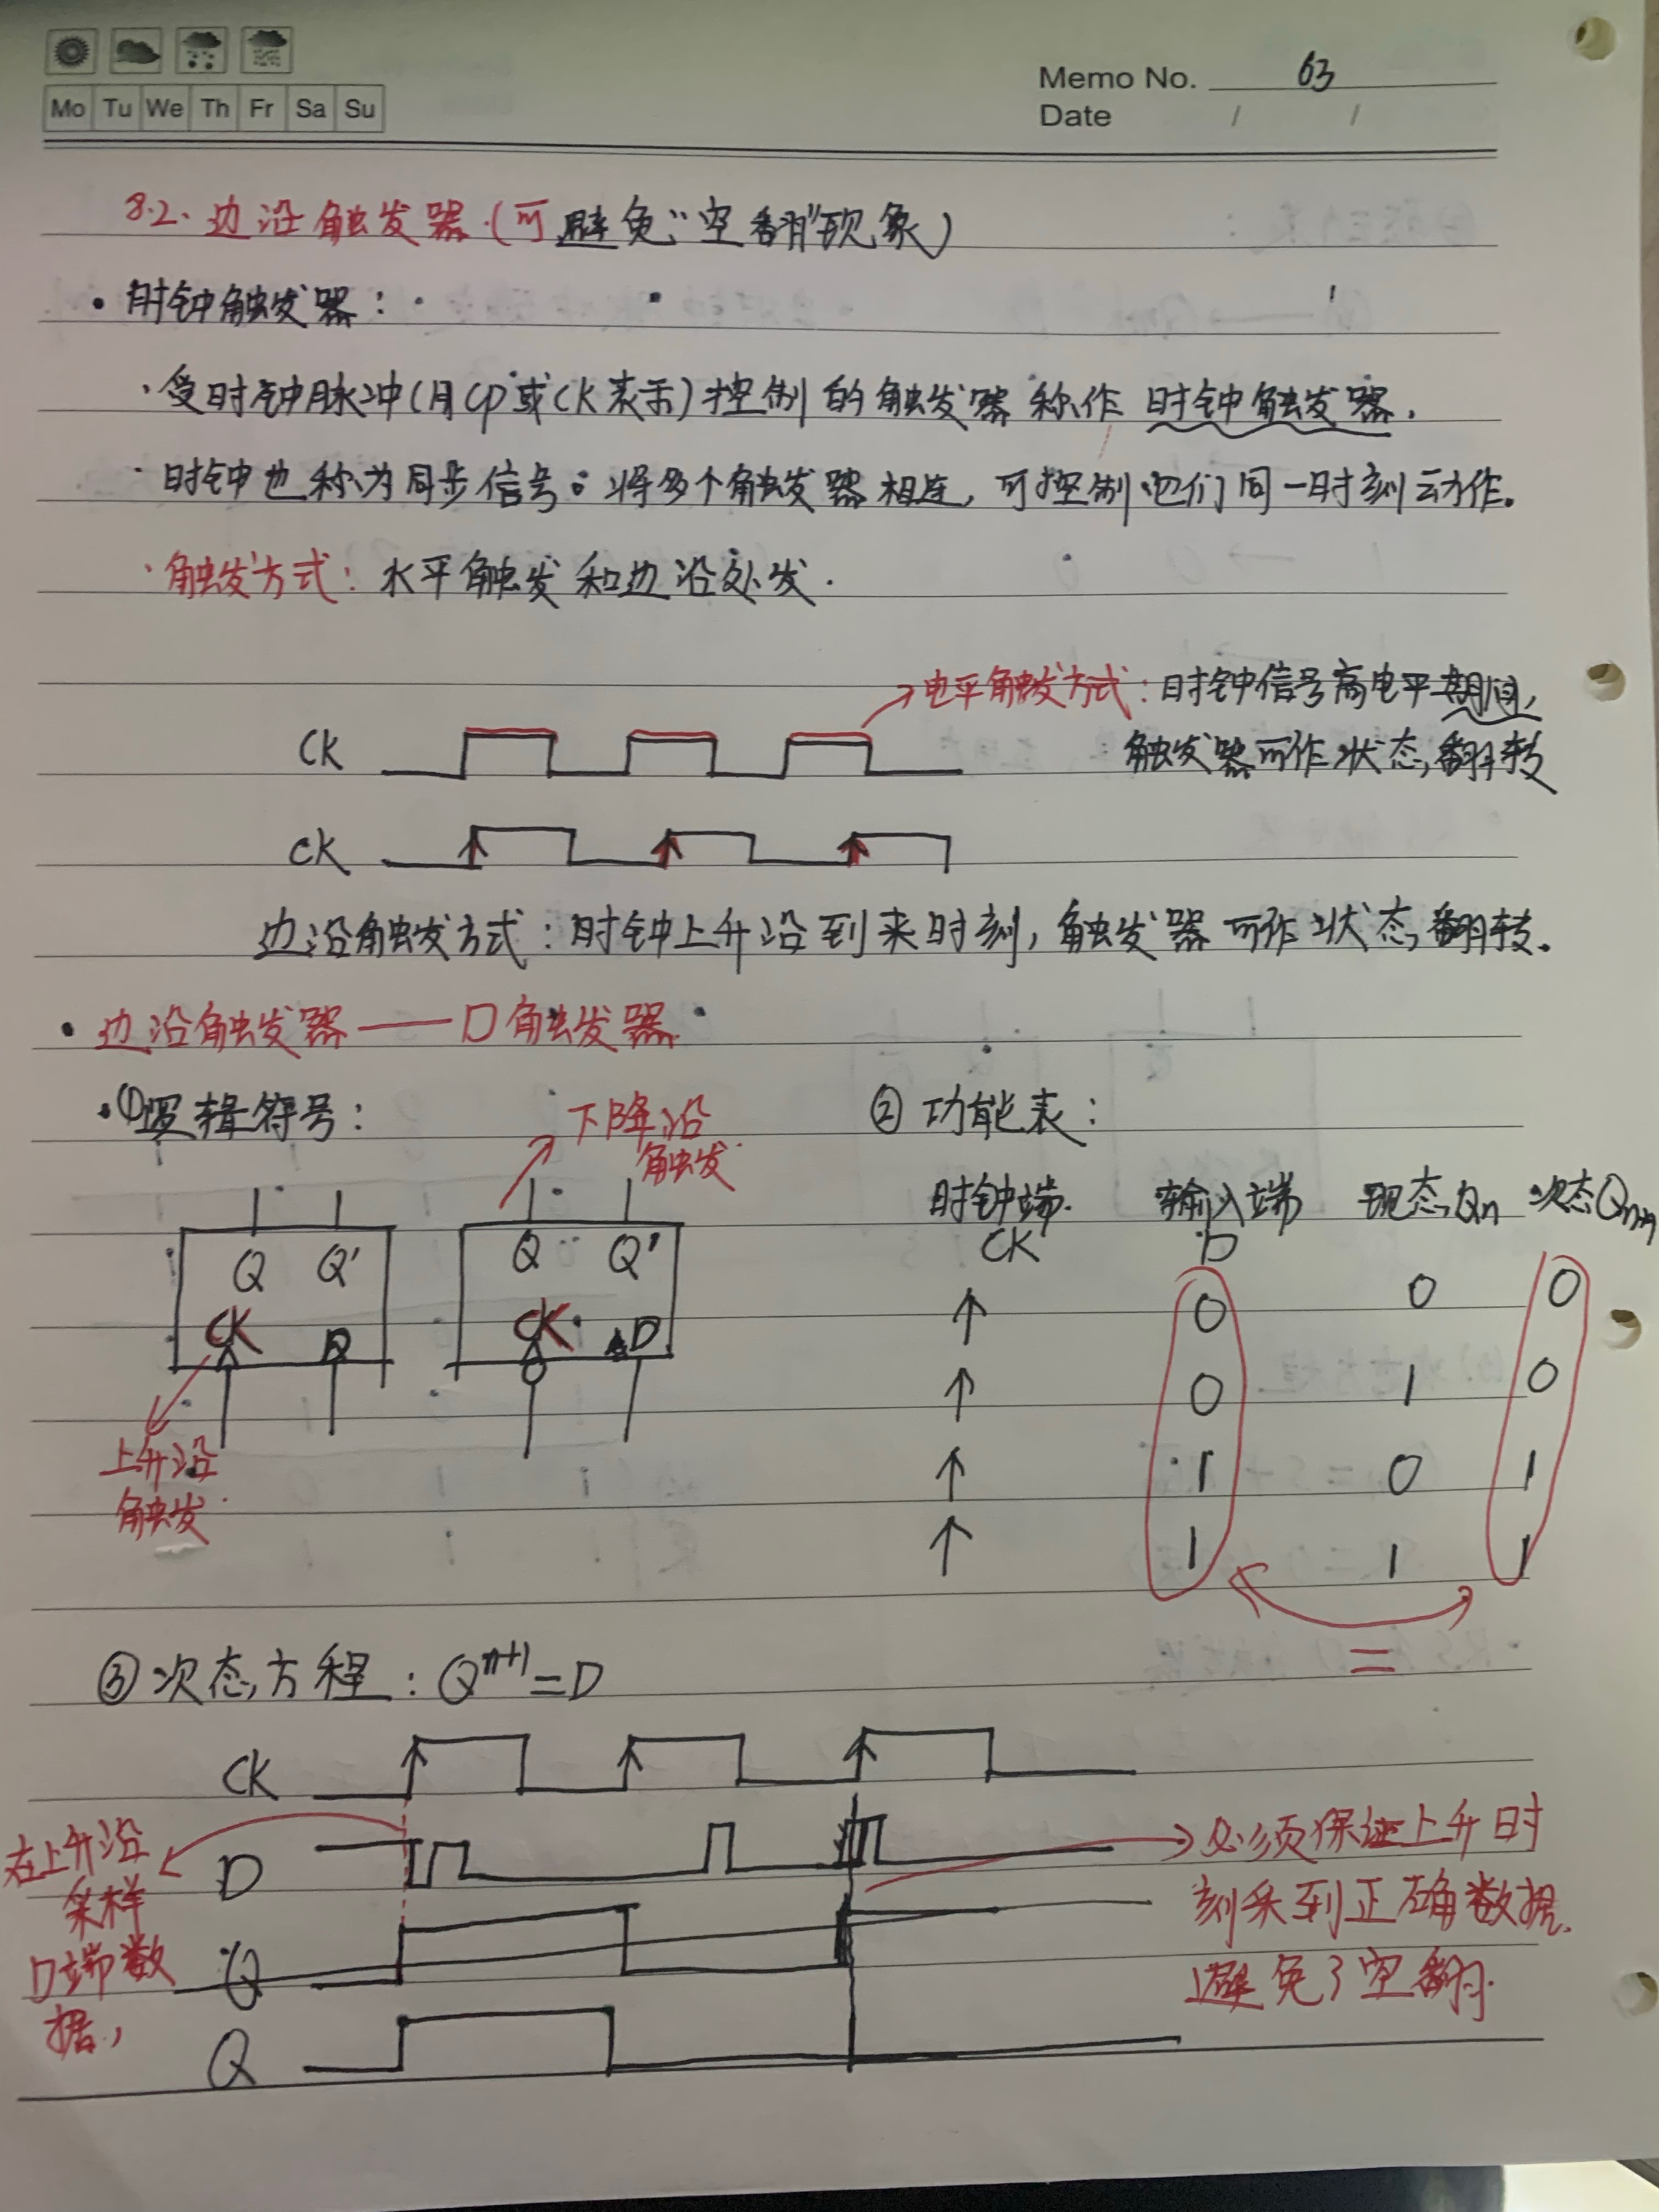 Mo Tu We Th Fr Sa Su
Memo No. 63
Date / /
8.2. 边沿触发器.(可避免"空翻"现象)
• 时钟触发器:
·受时钟脉冲(用CP或CK表示)控制的触发器称作 时钟触发器.
·时钟也称为同步信号。将多个触发器相连,可控制他们同一时刻动作。
·触发方式: 水平触发和边沿处发.
电平触发方式: 时钟信号高电平期间,
CK
触发器可作状态翻转
CK
边沿触发方式: 时钟上升沿到来时刻,触发器可作状态翻转。
• 边沿触发器——D触发器
·①逻辑符号:
下降沿
触发
② 功能表:
时钟端 输入端 现态Qn 次态Qn+1
CK D
Q Q' Q Q'
CK D CK D
↑ 0 0 0
↑ 0 1 0
↑ 1 0 1
↑ 1 1 1
=
上升沿
触发
③次态方程: Qⁿ⁺¹=D
CK
D
Q
Q
在上升沿
采样
D端数
据,
必须保证上升时
刻采到正确数据,
避免了空翻.